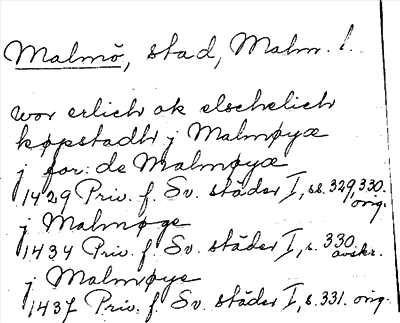 Malmö, stad, Malm. l.
wor erlich ok elschelich
køpstadh j Malmøyæ
j for: de Malmøyæ
1429 Priv. f. Sv. städer I, ss. 329, 330. orig.
j Malmøge
1434 Priv. f. Sv. städer I, s. 330. avskr.
j Malmøye
1437 Priv. f. Sv. städer I, s. 331. orig.